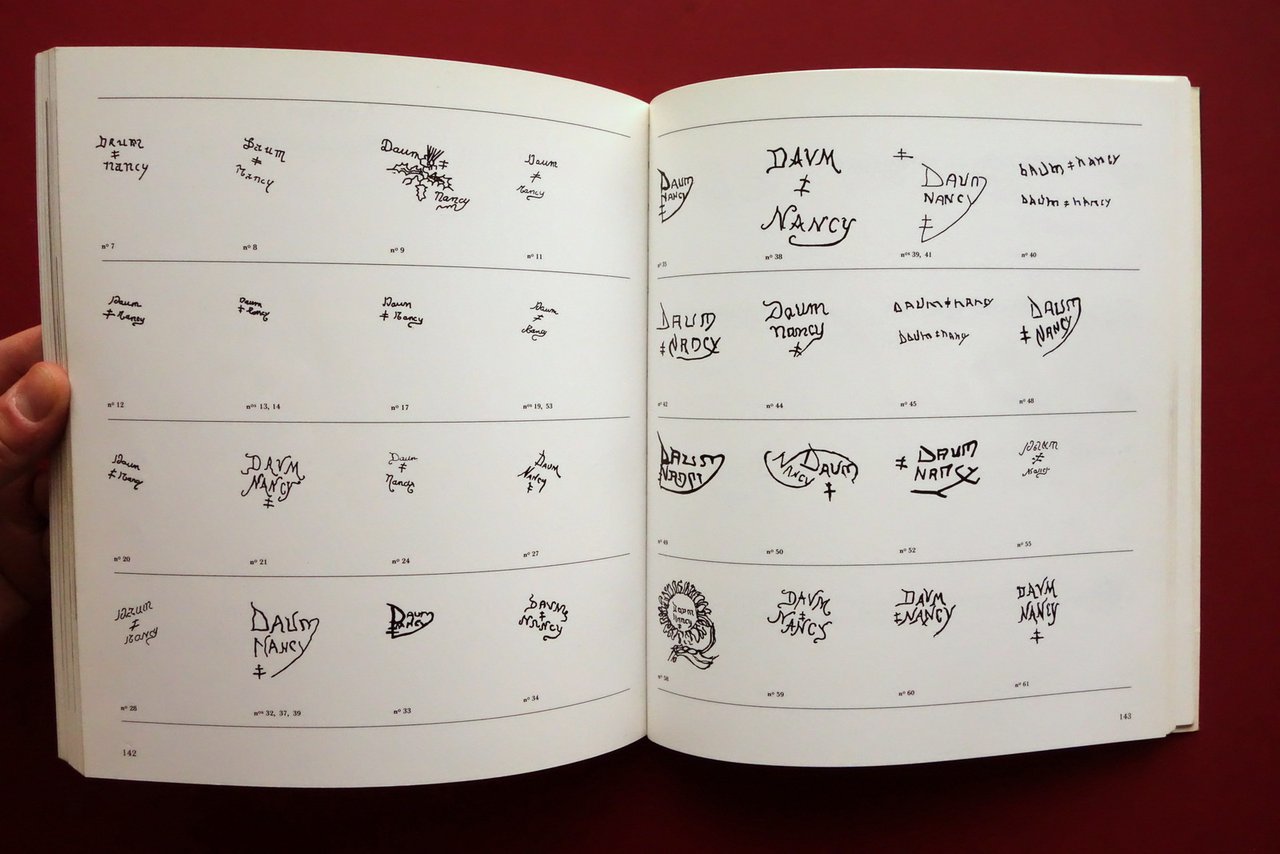 Daum
‡
Nancy
nº 7
Daum
‡
Nancy
nº 8
Daum
‡
Nancy
nº 9
Daum
‡
Nancy
nº 11
Daum
‡ Nancy
nº 12
Daum
‡ Nancy
nºˢ 13, 14
Daum
‡ Nancy
nº 17
Daum
‡
Nancy
nºˢ 19, 53
Daum
‡ Nancy
nº 20
DAVM
NANCY
‡
nº 21
Daum
‡
Nancy
nº 24
DAUM
NANCY
‡
nº 27
Daum
‡
Nancy
nº 28
DAUM
NANCY
‡
nºˢ 32, 37, 39
DAUM
‡ NANCY
nº 33
DAVM
‡
NANCY
nº 34
142
DAUM
NANCY
‡
nº 35
DAVM
‡
NANCY
nº 38
‡
DAUM
NANCY
‡
nºˢ 39, 41
DAUM ‡ NANCY
DAUM ‡ NANCY
nº 40
DAUM
‡ NANCY
nº 42
DAUM
NANCY
‡
nº 44
DAUM ‡ NANCY
DAUM ‡ NANCY
nº 45
DAUM
‡ NANCY
nº 48
DAUM
NANCY
nº 49
NANCY DAUM
‡
nº 50
‡ DAUM
NANCY
nº 52
Daum
‡
Nancy
nº 55
Daum
Nancy
nº 58
DAVM
‡
NANCY
nº 59
DAVM
‡ NANCY
nº 60
DAVM
NANCY
‡
nº 61
143